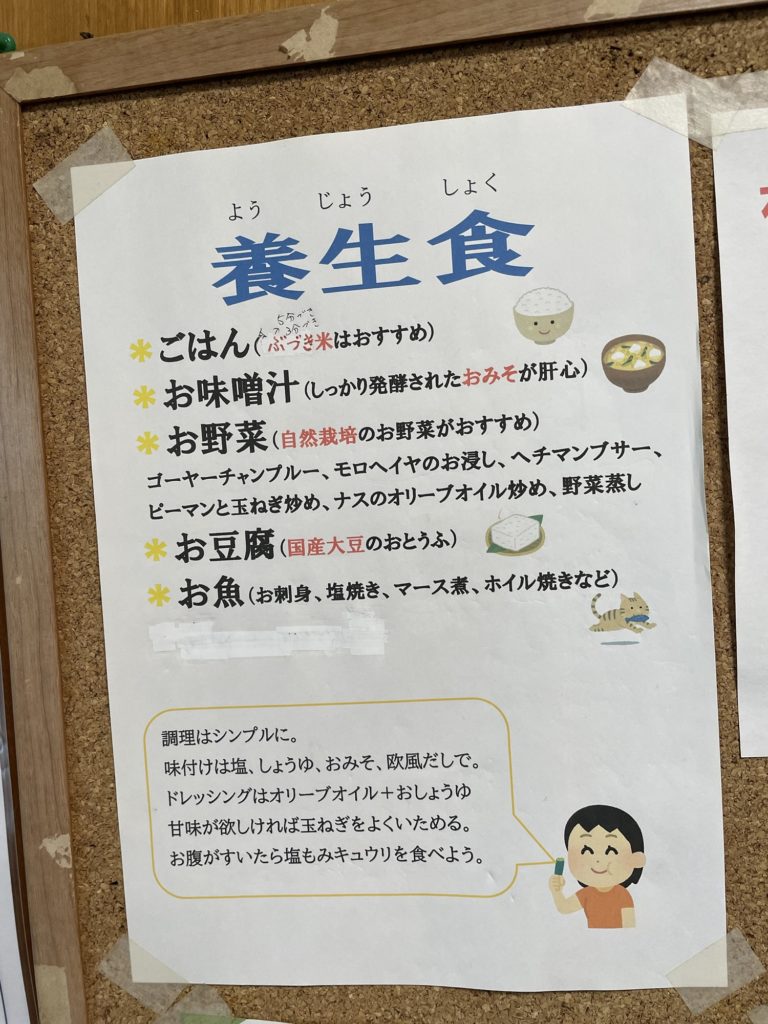 よう じょう しょく
養生食
5分づき
3分づき
*ごはん(ぶづき米はおすすめ)
*お味噌汁(しっかり発酵されたおみそが肝心)
*お野菜(自然栽培のお野菜がおすすめ)
ゴーヤーチャンプルー、モロヘイヤのお浸し、ヘチマンブサー、
ピーマンと玉ねぎ炒め、ナスのオリーブオイル炒め、野菜蒸し
*お豆腐(国産大豆のおとうふ)
*お魚(お刺身、塩焼き、マース煮、ホイル焼きなど)
調理はシンプルに。
味付けは塩、しょうゆ、おみそ、欧風だしで。
ドレッシングはオリーブオイル+おしょうゆ
甘味が欲しければ玉ねぎをよくいためる。
お腹がすいたら塩もみキュウリを食べよう。